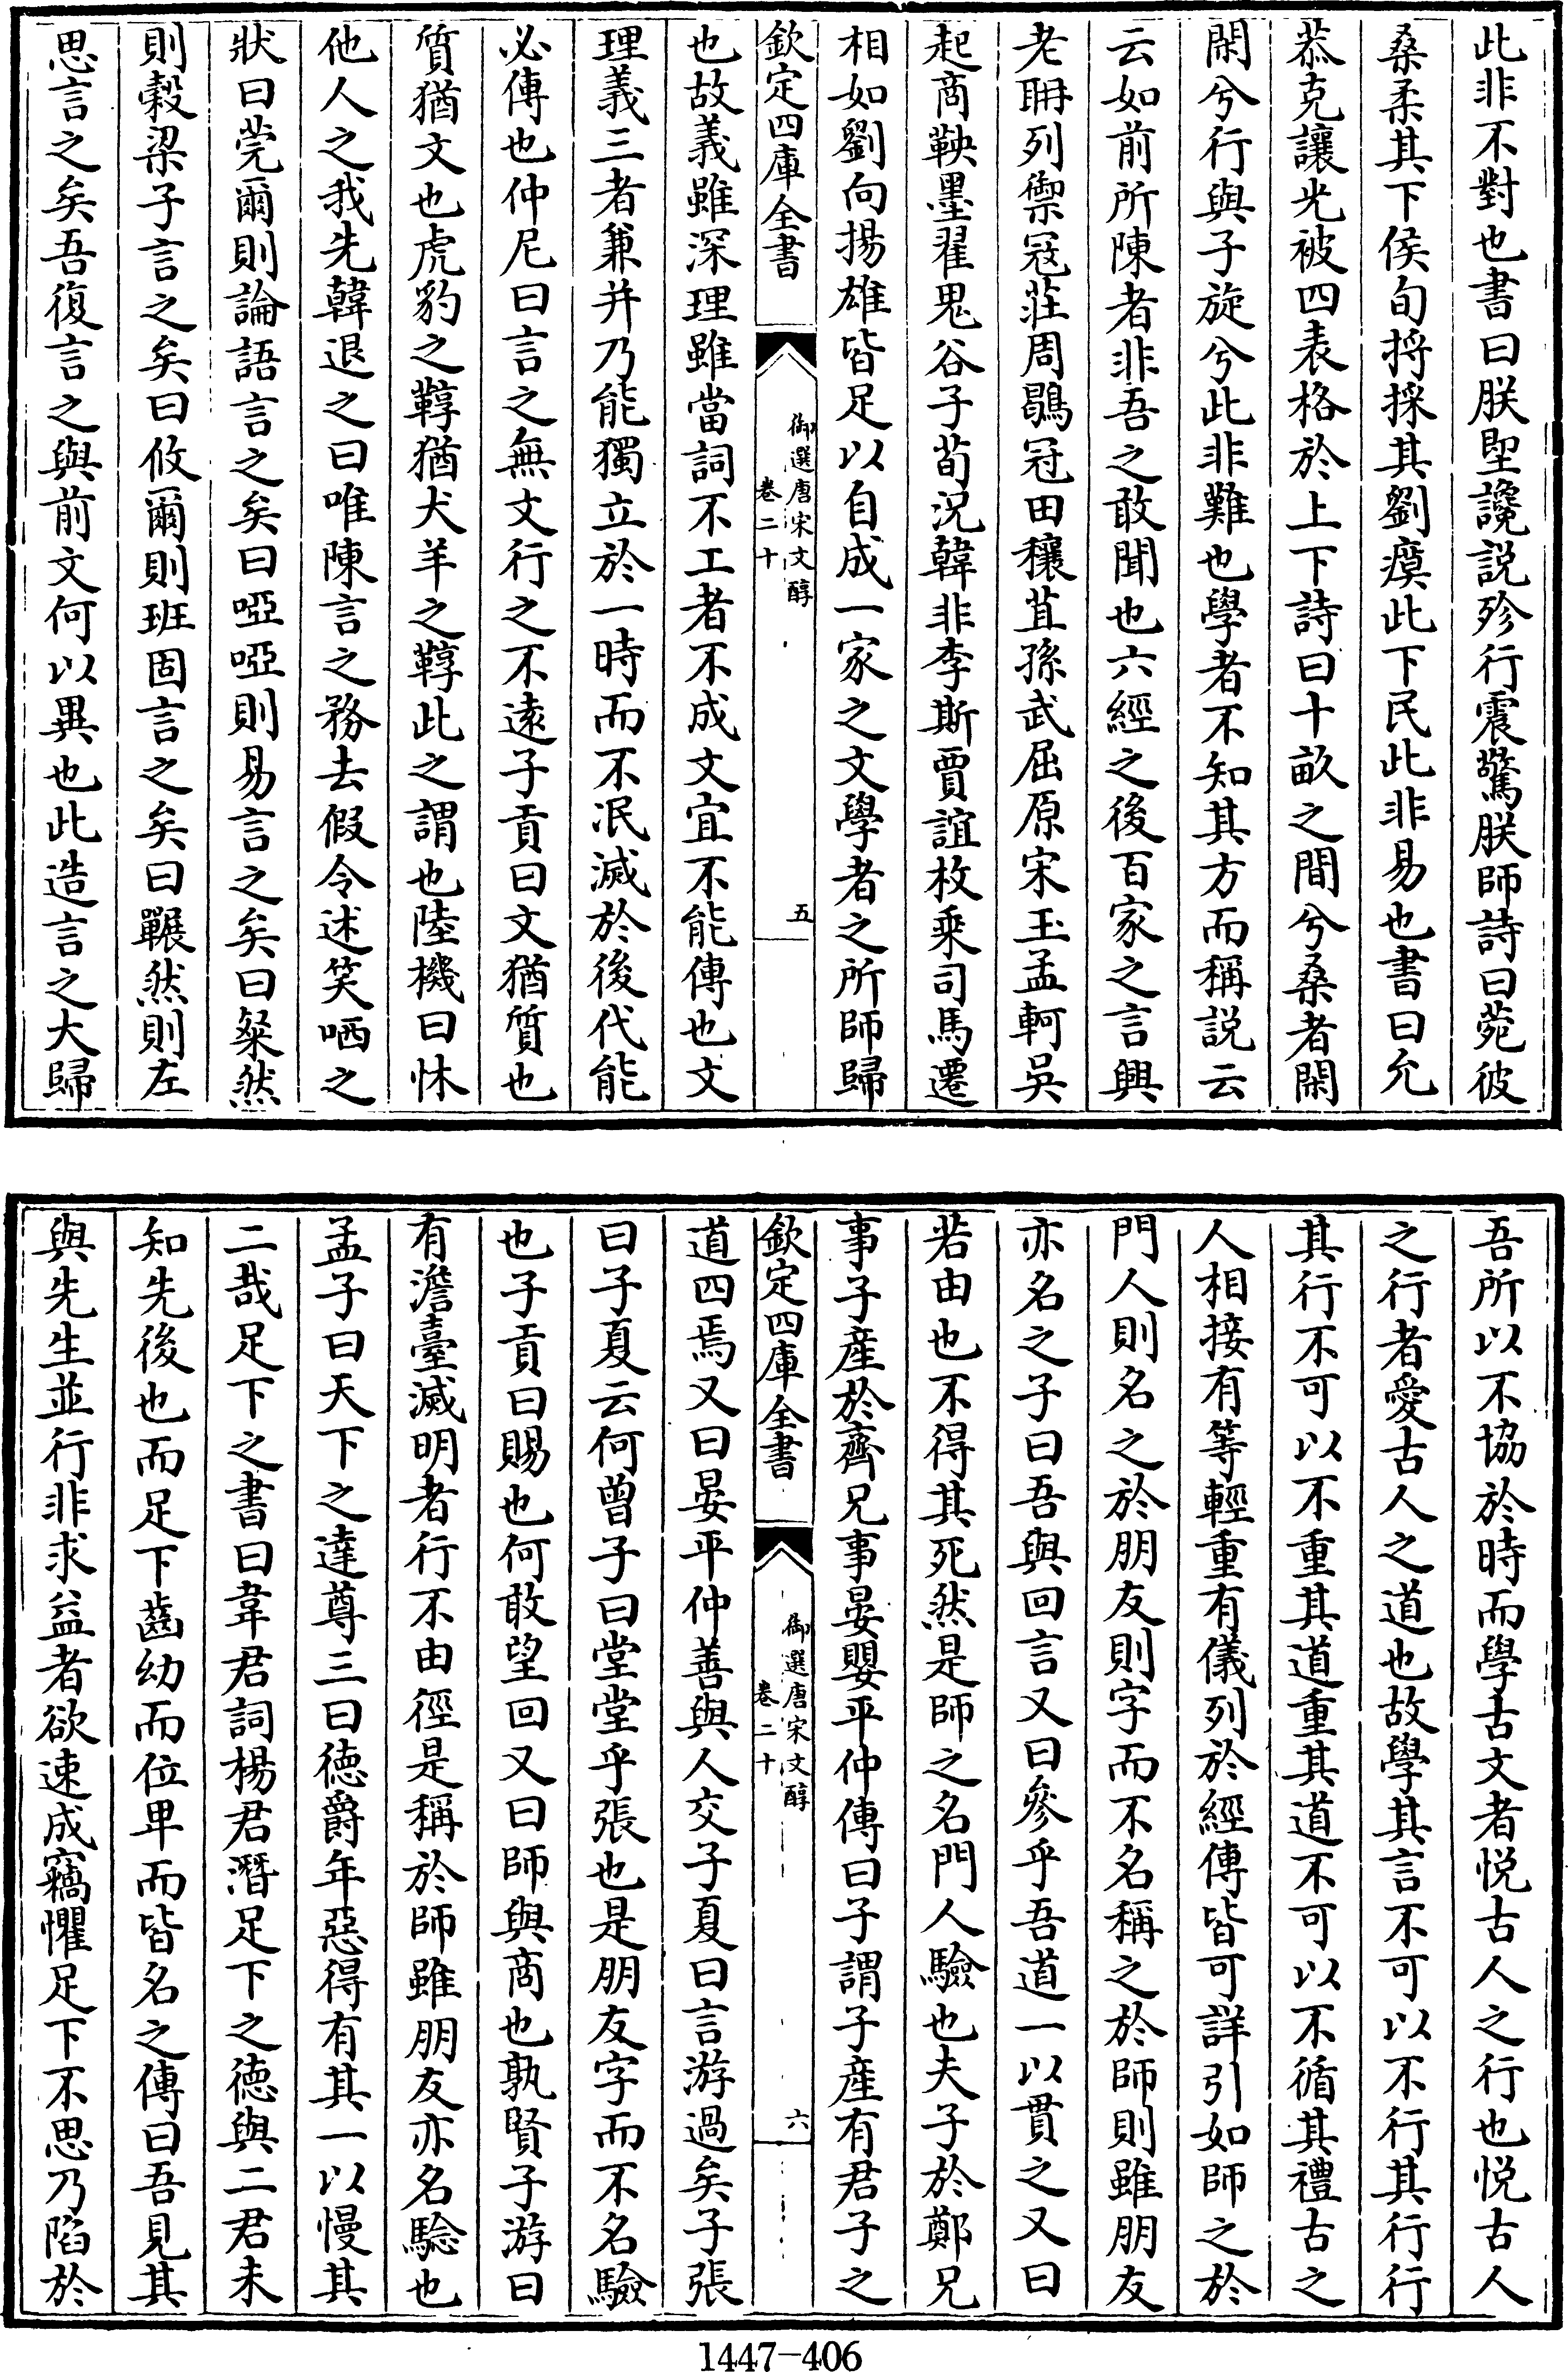 此非不對也書曰朕堲讒說殄行震驚朕師詩曰菀彼
桑柔其下侯旬捋採其劉瘼此下民此非易也書曰允
恭克讓光被四表格於上下詩曰十畝之間兮桑者閑
閑兮行與子旋兮此非難也學者不知其方而稱說云
云如前所陳者非吾之敢聞也六經之後百家之言興
老聃列禦冦莊周鶡冠田穰苴孫武屈原宋玉孟軻吳
起商鞅墨翟鬼谷子荀況韓非李斯賈誼枚乗司馬遷
相如劉向揚雄皆足以自成一家之文學者之所師歸
欽定四庫全書
御選唐宋文醇
卷二十
五
也故義雖深理雖當詞不工者不成文宜不能傳也文
理義三者兼并乃能獨立於一時而不泯滅於後代能
必傳也仲尼曰言之無文行之不逺子貢曰文猶質也
質猶文也虎豹之鞟猶犬羊之鞟此之謂也陸機曰怵
他人之我先韓退之曰唯陳言之務去假令述笑哂之
狀曰莞爾則論語言之矣曰啞啞則易言之矣曰粲然
則穀梁子言之矣曰攸爾則班固言之矣曰囅然則左
思言之矣吾復言之與前文何以異也此造言之大歸
吾所以不協於時而學古文者悦古人之行也悦古人
之行者愛古人之道也故學其言不可以不行其行行
其行不可以不重其道重其道不可以不循其禮古之
人相接有等輕重有儀列於經傳皆可詳引如師之於
門人則名之於朋友則字而不名稱之於師則雖朋友
亦名之子曰吾與回言又曰參乎吾道一以貫之又曰
若由也不得其死然是師之名門人驗也夫子於鄭兄
事子產於齊兄事晏嬰平仲傳曰子謂子產有君子之
欽定四庫全書
御選唐宋文醇
卷二十
六
道四焉又曰晏平仲善與人交子夏曰言游過矣子張
曰子夏云何曾子曰堂堂乎張也是朋友字而不名驗
也子貢曰賜也何敢望回又曰師與商也孰賢子游曰
有澹臺滅明者行不由徑是稱於師雖朋友亦名驗也
孟子曰天下之達尊三曰德爵年惡得有其一以慢其
二哉足下之書曰韋君詞楊君潛足下之德與二君未
知先後也而足下齒幼而位卑而皆名之傳曰吾見其
與先生並行非求益者欲速成竊懼足下不思乃陷於
1447-406